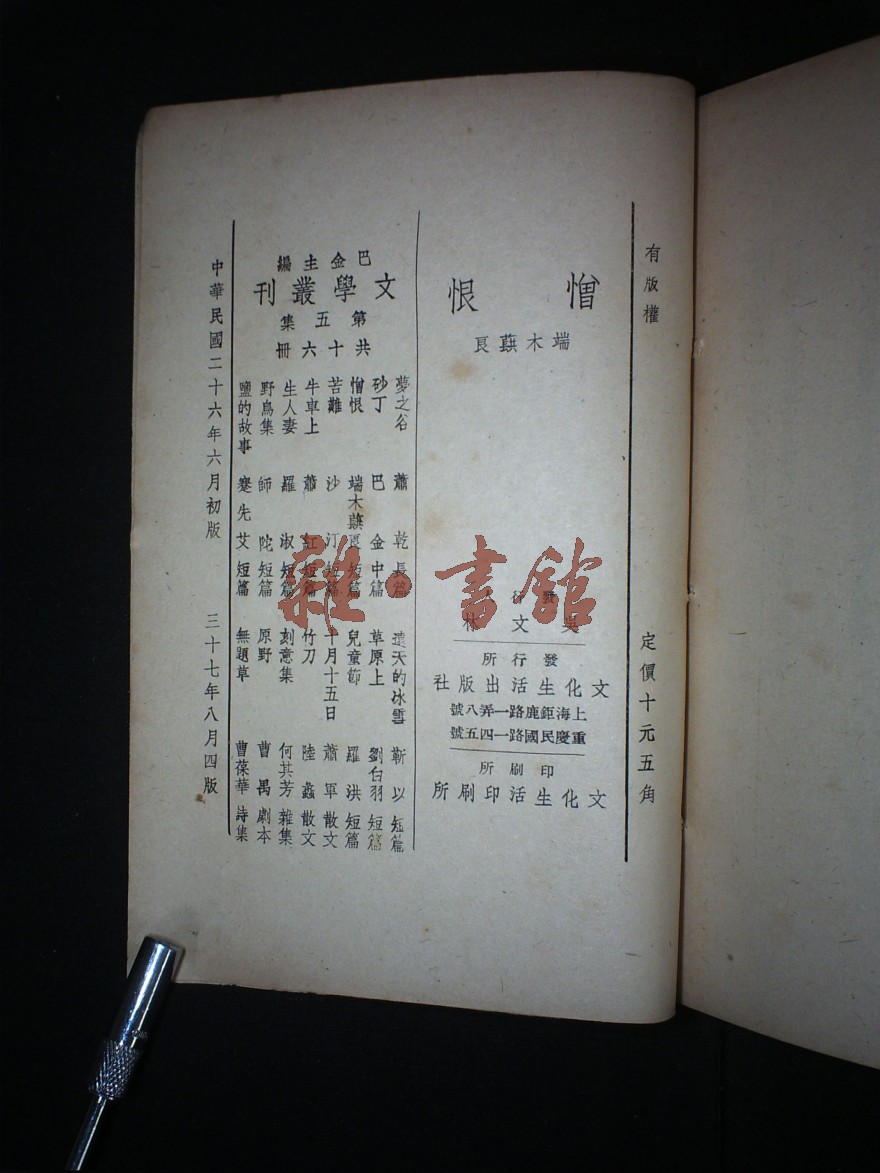 有版權
定價十元五角
憎恨
端木蕻良
發行人
吳文林
發行所
文化生活出版社
上海鉅鹿路一弄八號
重慶民國路一四五號
印刷所
文化生活印刷所
巴金主編
文學叢刊
第五集
共十六冊
夢之谷 蕭乾 長篇
砂丁 巴金 中篇
憎恨 端木蕻良 短篇
苦難 沙汀 短篇
牛車上 蕭紅 短篇
生人妻 羅淑 短篇
野鳥集 師陀 短篇
鹽的故事 蹇先艾 短篇
遠天的冰雪 靳以 短篇
草原上 劉白羽 短篇
兒童節 羅洪 短篇
十月十五日 蕭軍 散文
竹刀 陸蠡 散文
刻意集 何其芳 雜集
原野 曹禺 劇本
無題草 曹葆華 詩集
中華民國二十六年六月初版
三十七年八月四版
雜·書館